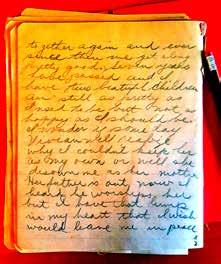 together again and ever
since then we get along
pretty good. Seven years
have passed and I
have two beautiful children
am still as pretty as
I used to be but not as
happy as I should be
I wonder if some day
will realize
why I couldn't keep her
as my own or will she
disown me as her mother
Her father is out now I
hear he worships her
but I have that lump
in my heart that I wish
would leave me in peace